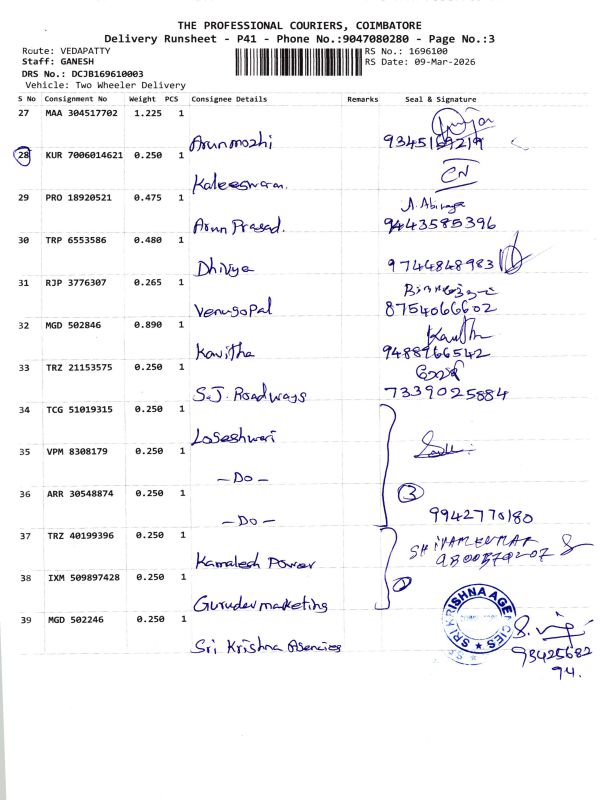 THE PROFESSIONAL COURIERS, COIMBATORE
Delivery Runsheet - P41 - Phone No.:9047080280 - Page No.:3
Route: VEDAPATTY
RS No.: 1696100
Staff: GANESH
RS Date: 09-Mar-2026
DRS No.: DCJB169610003
Vehicle: Two Wheeler Delivery
S No Consignment No Weight PCS Consignee Details Remarks Seal & Signature
27 MAA 304517702 1.225 1
Arunmozhi
28 KUR 7006014621 0.250 1 CN
Kaleeswaran.
29 PRO 18920521 0.475 1 A. Abinaya
Arun Prasad. 9443585396
30 TRP 6553586 0.480 1
Dhivya 9744848983
31 RJP 3776307 0.265 1
Venugopal 8754066602
32 MGD 502846 0.890 1
Kavitha 9488966542
33 TRZ 21153575 0.250 1
S.J. Roadways 7339025884
34 TCG 51019315 0.250 1
Logeshwari
35 VPM 8308179 0.250 1
- Do -
36 ARR 30548874 0.250 1 3
- Do - 9942770180
37 TRZ 40199396 0.250 1 SHIVAMEUMAR
Kamalesh Power
38 IXM 509897428 0.250 1
Gurudev marketing
39 MGD 502246 0.250 1 SRI KRISHNA AGENCIES
Sri Krishna Agencies 93425682
94.